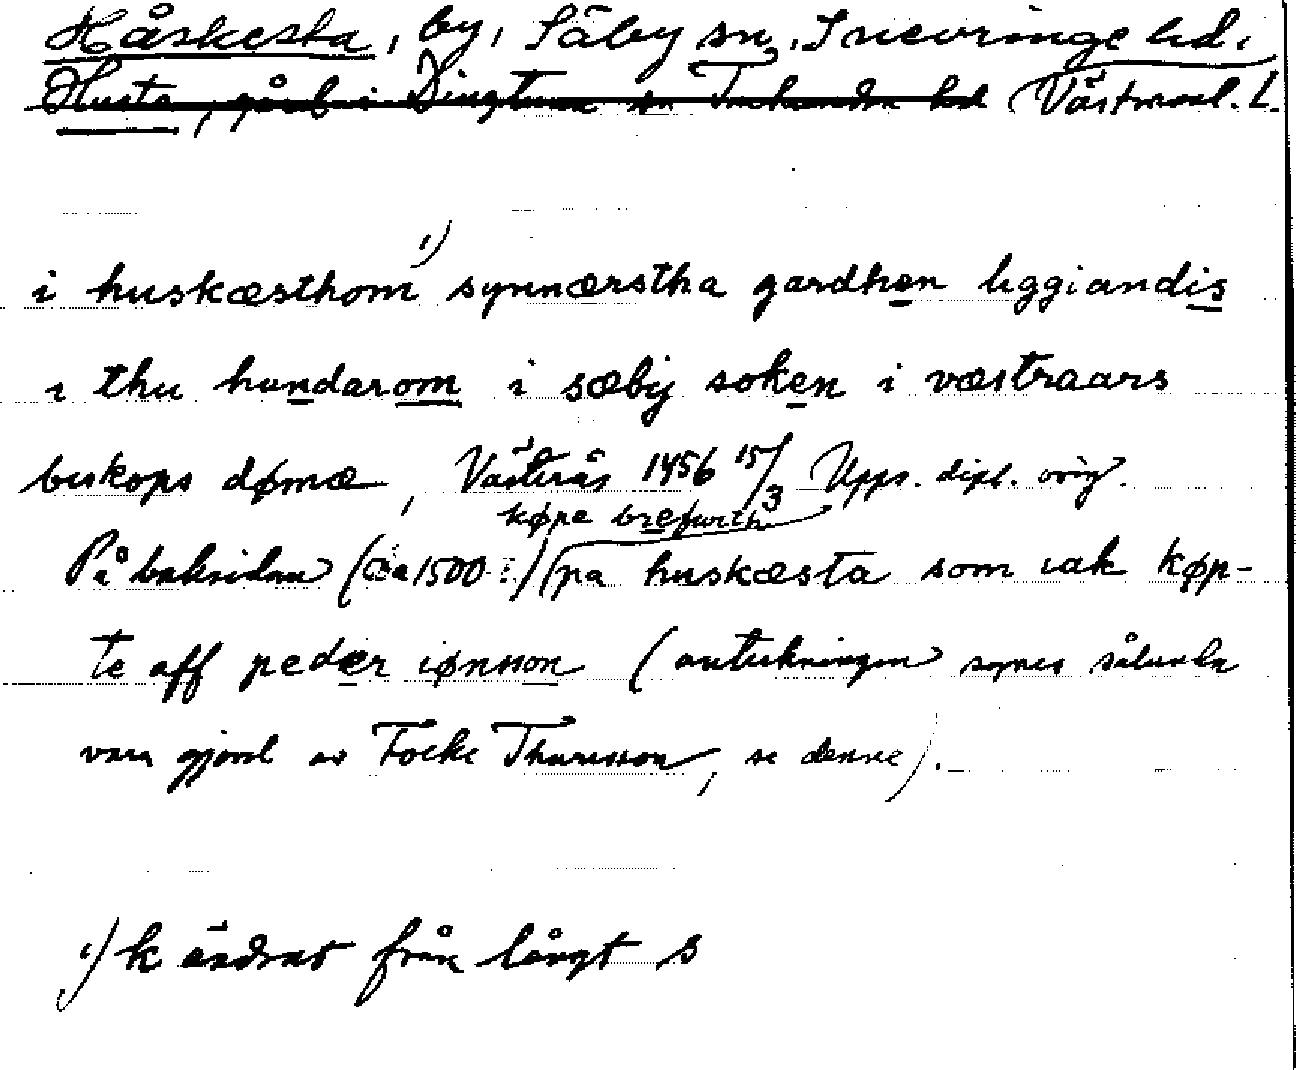 Håskesta, by, Säby sn, Snevringe hd.
Husta, gård i Dingtuna sn Tuhundra hd Västmanl. L.
i huskæsthom 1) synnærstha gardhen liggiandis
i thu hundarom i sæby soken i væstraars
biskops dømæ, Västerås 1456 15/3 Upps. dipl. orig.
køpe brefwith
På baksidan (Ca 1500:) pa huskæsta som iak køp-
te aff peder iønsson (anteckningen synes sålunda
vara gjord av Focke Thuresson, se denne).
1) k ändrat från långt s